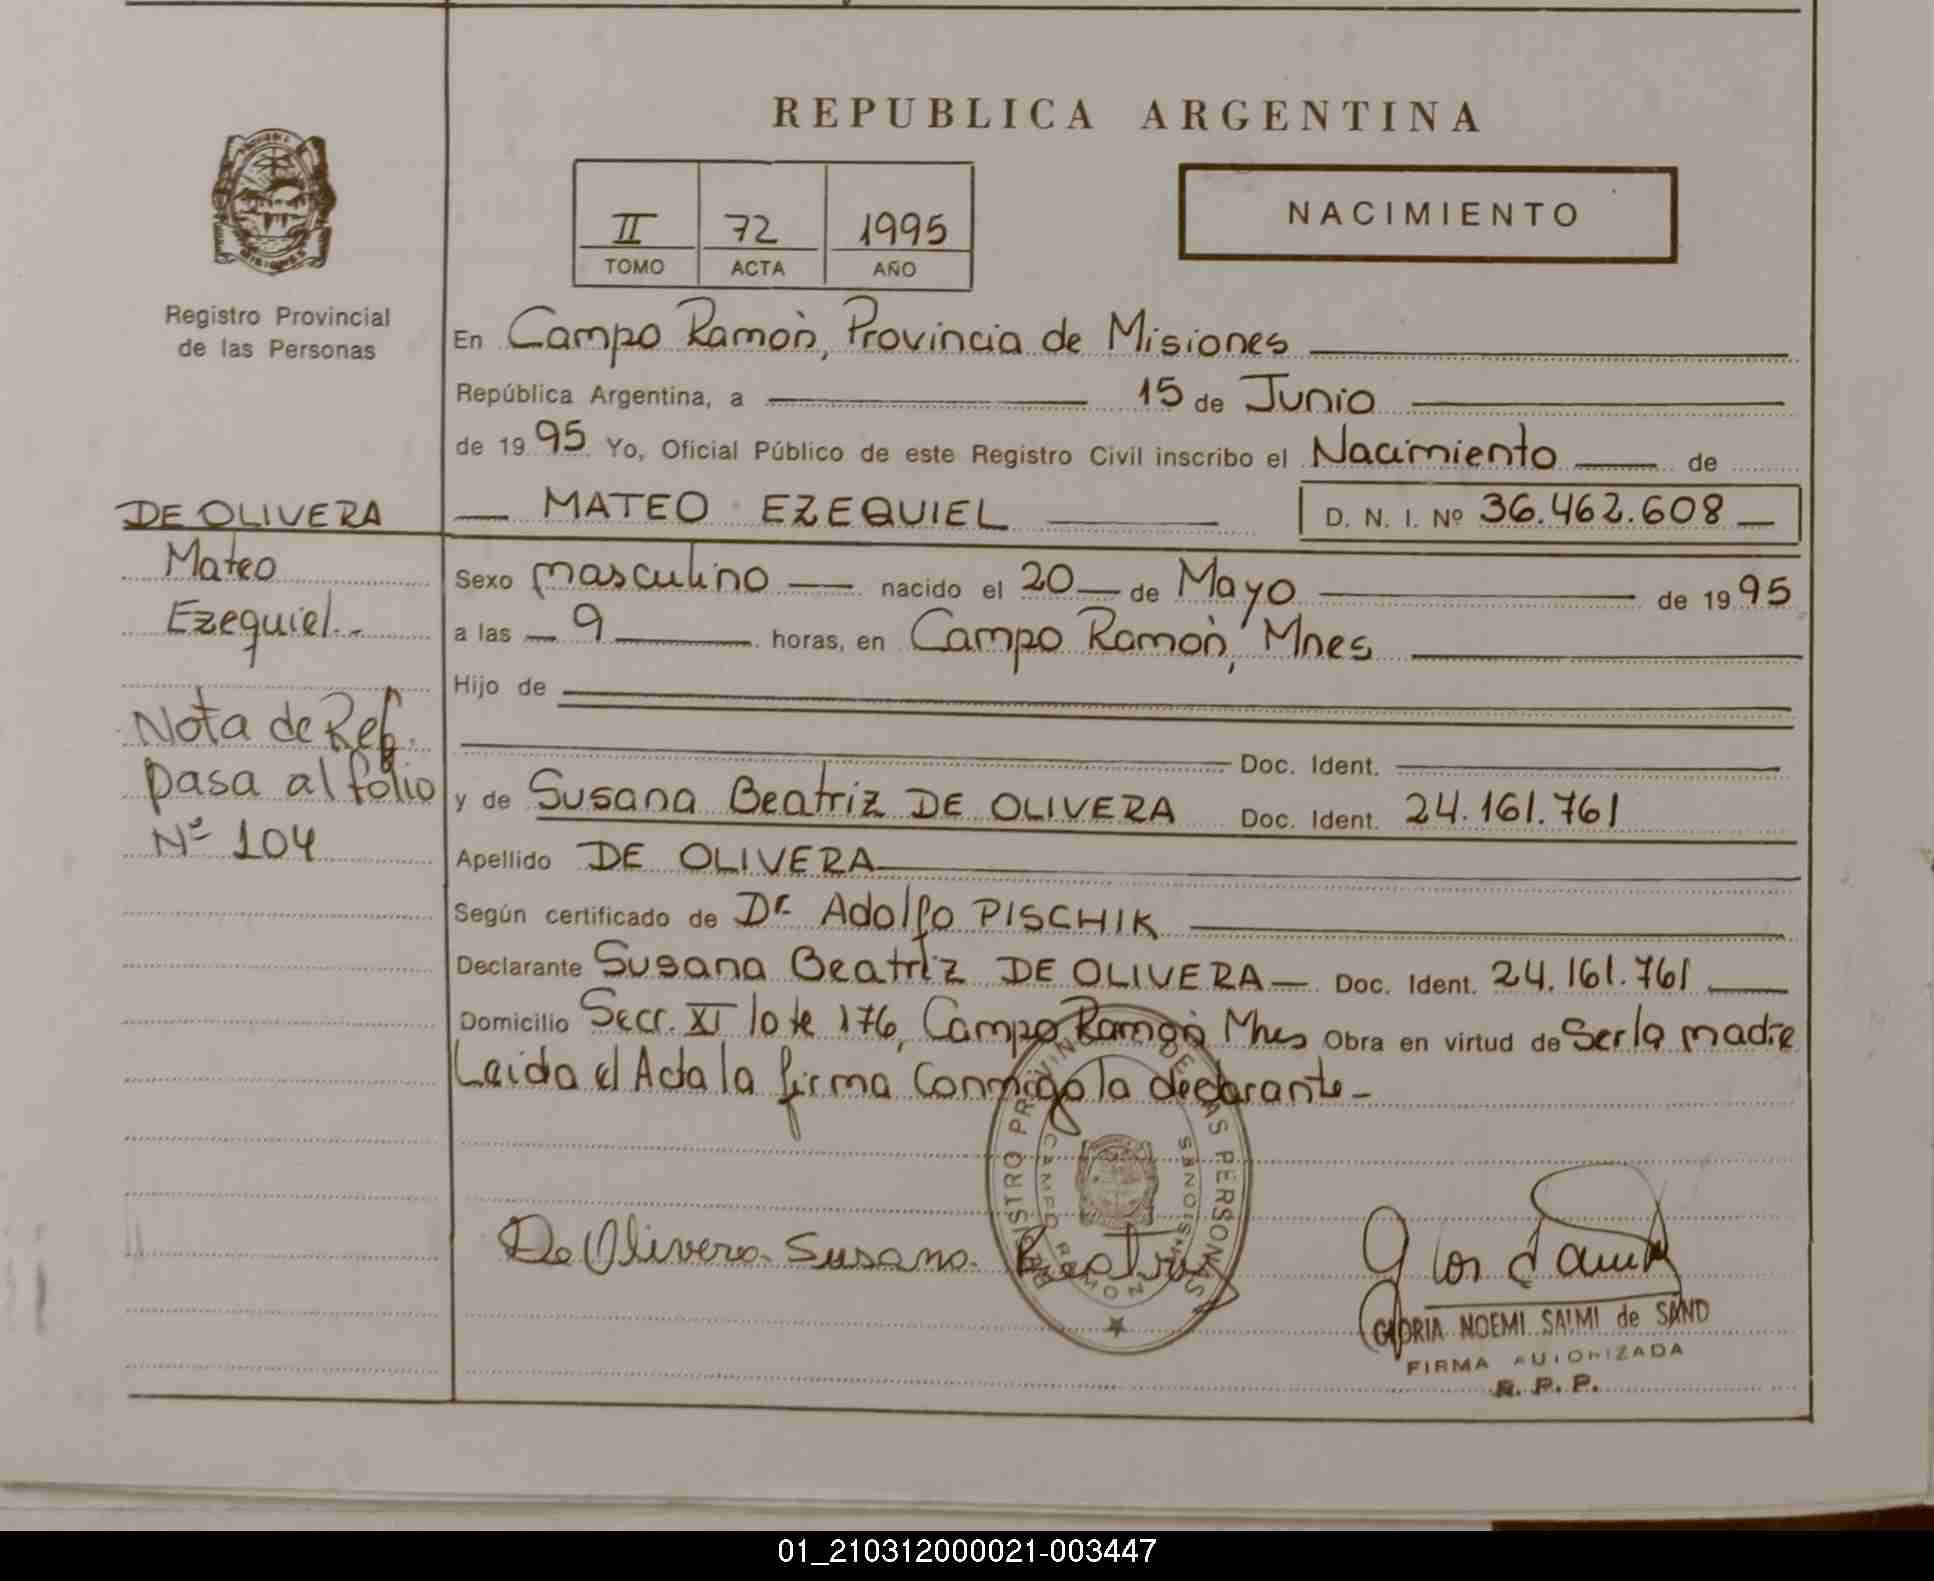 REPUBLICA ARGENTINA
II 72 1995
TOMO ACTA AÑO
NACIMIENTO
Registro Provincial
de las Personas
En Campo Ramón, Provincia de Misiones
República Argentina, a 15 de Junio
de 1995 Yo, Oficial Público de este Registro Civil inscribo el Nacimiento de
MATEO EZEQUIEL D. N. I. Nº 36.462.608
DE OLIVERA
Mateo
Ezequiel.-
Nota de Ref.
pasa al folio
Nº 104
Sexo masculino nacido el 20 de Mayo de 1995
a las 9 horas, en Campo Ramón, Mnes
Hijo de
Doc. Ident.
y de Susana Beatriz DE OLIVERA Doc. Ident. 24.161.761
Apellido DE OLIVERA
Según certificado de Dr. Adolfo PISCHIK
Declarante Susana Beatriz DE OLIVERA Doc. Ident. 24.161.761
Domicilio Secc. XI lote 176, Campo Ramón Mnes Obra en virtud de Ser la madre
Leida el Acta la firma conmigo la declarante-
REGISTRO PROVINCIAL DE LAS PERSONAS
CAMPO RAMON MISIONES
De Olivera Susana Beatriz
GLORIA NOEMI SAIMI de SAND
FIRMA AUTORIZADA
R. P. P.
01_210312000021-003447